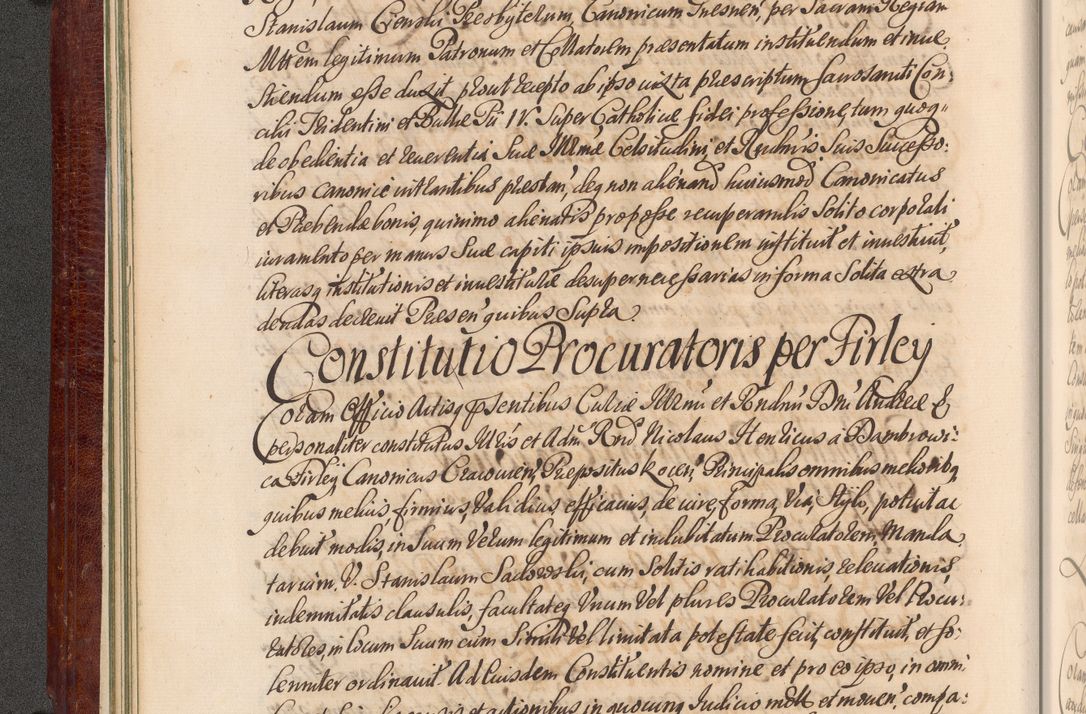 Stanislaum Czenski Presbyterum, Canonicum Gnesnen, per Sacram Regiam
Mttem legitimum Patronum et Collatorem praesentatum instituendum et inve
stiendum esse duxit, prout recepto ab ipso iuxta praescriptum Sacrosancti Con:
cilii Tridentini et Bullae Pii IV. Super Catholicae fidei professione, tum quoq
de obedientia et reverentia Suae Illmae Celsitudini, et Rndmis Suis Successo:
ribus canonice intrantibus praestan, deq non alienand huiusmod Canonicatus
et Praebendae bonis, quinimo alienatis pro posse recuperandis Solito corporali
iuramento per manus Suae capiti ipsius impositionem instituit et investivit,
literasq institutionis et investiturae desuper necessarias in forma Solita extra
dendas decrevit Praesen quibus Supra.
Constitutio Procuratoris per Firley
Coram Officio Actisq psentibus Curiae Illmi et Rndmi Dni Andreae E
personaliter constitutus Illris et Adm Rnd Nicolaus Henricus à Dambrowi:
ca Firley Canonicus Cracovien, Praepositus Kocen, Principalis omnibus melioribq
quibus melius, firmius, validius, efficacius, de iure, forma, via, stylo, potuit ac
debuit modis, in Suum Verum legitimum et indubitatum Procuratorem, Manda
tarium V. Stanislaum Sadowski, cum Solitis ratihabitionis, relevationis,
indemnitatis clausulis, facultateq Unum Vel plures Procuratorem Vel Procu:
ratores, in locum Suum cum Simili Vel limitata potestate fecit, constituit, et so:
lenniter ordinavit. Ad Eiusdem Constituentis nomine et pro eo ipso, in omni
et actionibus in quocunq Judicio mott et moven, compa: